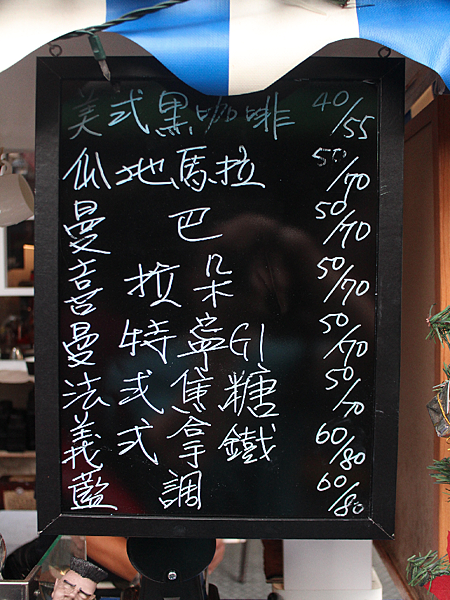 美式黑咖啡 40/55
瓜地馬拉 50/70
曼巴 50/70
喜拉朵 50/70
曼特寧G1 50/70
法式焦糖 50/70
義式拿鐵 60/80
藍調 60/80